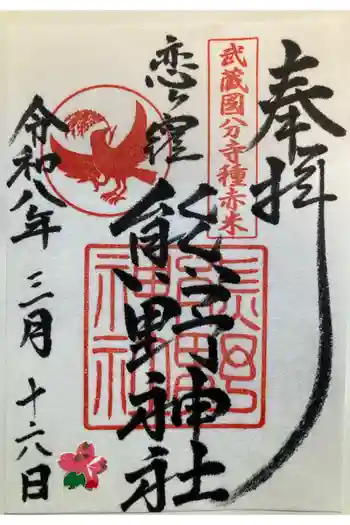 奉拝
武蔵國分寺種赤米
恋ヶ窪
熊野神社
熊野神社
令和八年
三月
十六日